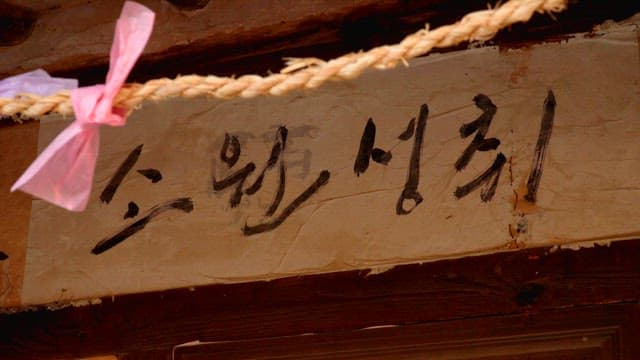 소원성취